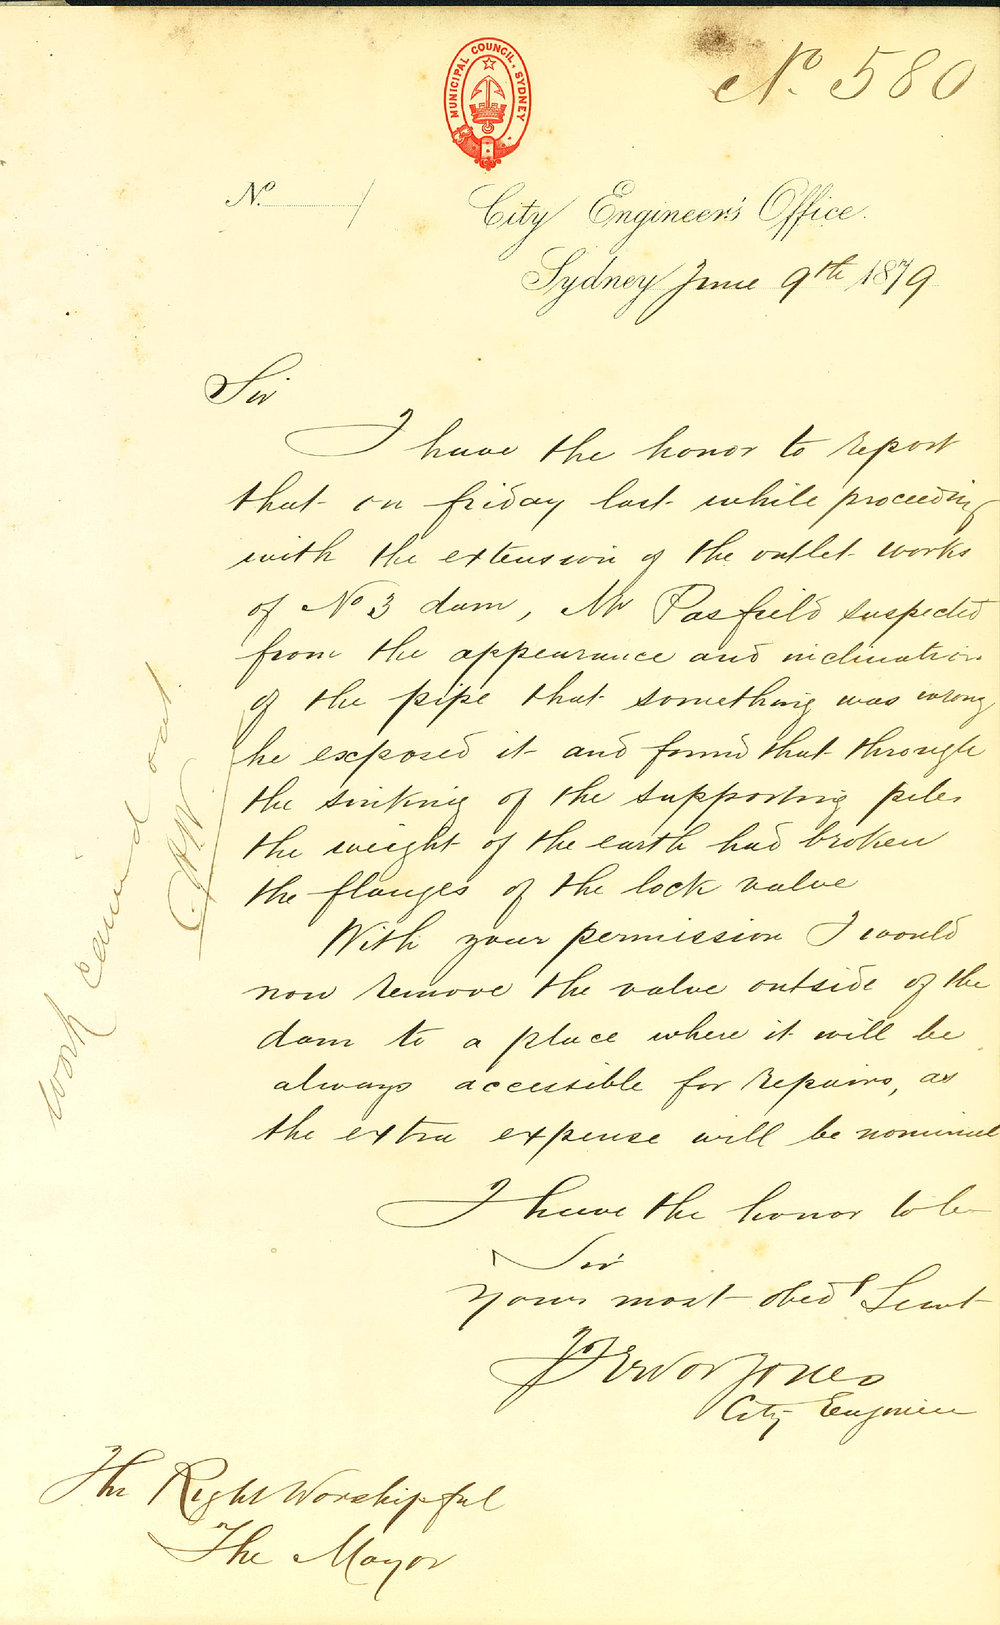 No. 580
MUNICIPAL COUNCIL. SYDNEY
No.
City Engineer's Office.
Sydney June 9th 1879
Sir
I have the honor to report
that on friday last while proceeding
with the extension of the outlet works
of No 3 dam, Mr Pasfield suspected
from the appearance and inclination
of the pipe that something was wrong
he exposed it and found that through
the sinking of the supporting piles
the weight of the earth had broken
the flanges of the lock valve
With your permission I would
now remove the valve outside of the
dam to a place where it will be
always accessible for repairs, as
the extra expense will be nominal
I have the honor to be
Sir
Yours most obedt Servt
Trevor Jones
City Engineer
The Right Worshipful
The Mayor
work carried out